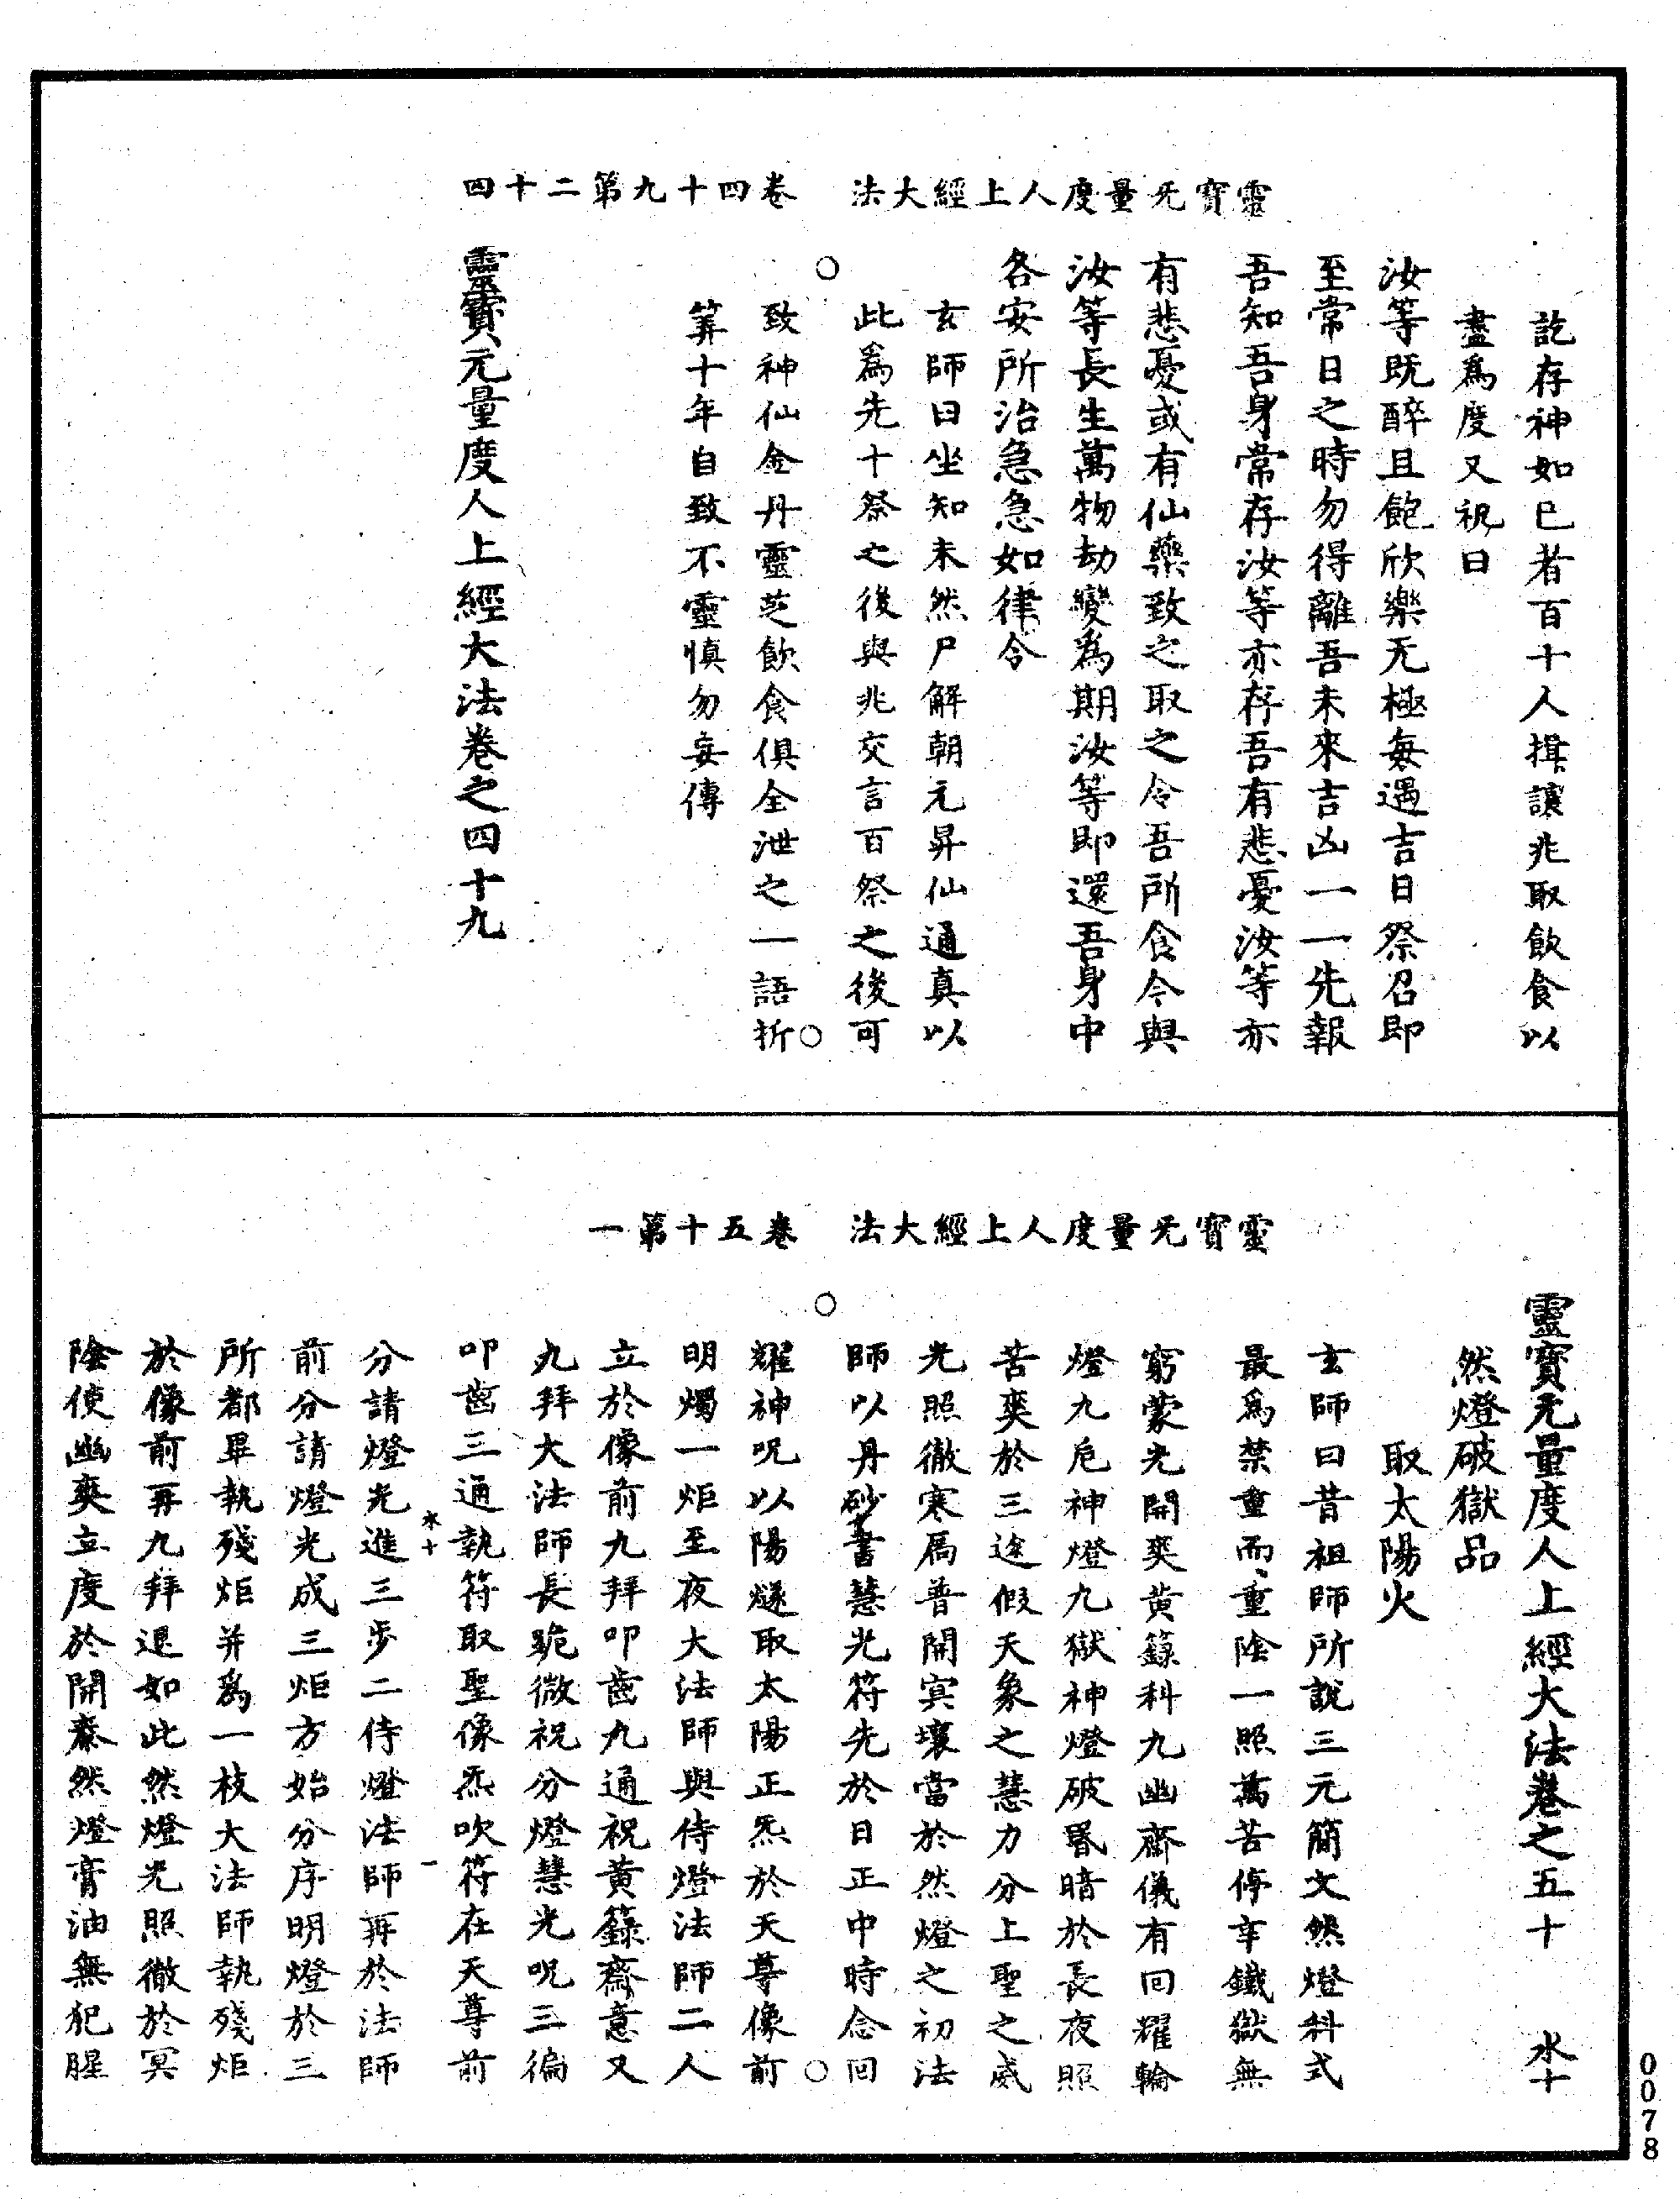 靈寶无量度人上經大法　卷四十九第二十四
訖存神如已者百十人揖讓兆取飲食以
盡爲度又祝曰
汝等既醉且飽欣樂无極每遇吉日祭召即
至常日之時勿得離吾未來吉凶一一先報
吾知吾身常存汝等亦存吾有悲憂汝等亦
有悲憂或有仙藥致之取之令吾所食令與
汝等長生萬物劫變爲期汝等即還吾身中
各安所治急急如律令
玄師曰坐知未然尸解朝元昇仙通真以
此爲先十祭之後與兆交言百祭之後可
致神仙金丹靈芝飲食俱全泄之一語折
筭十年自致不靈慎勿妄傳
靈寶元量度人上經大法卷之四十九
靈寶无量度人上經大法　卷五十第一
靈寶无量度人上經大法卷之五十　水十
然燈破獄品
取太陽火
玄師曰昔祖師所說三元簡文然燈科式
最爲禁重而重陰一照萬苦停辛鐵獄無
窮蒙光開爽黃籙科九幽齋儀有回耀輪
燈九巵神燈九獄神燈破暑暗於長夜照
苦爽於三途假天象之慧力分上聖之威
光照徹寒局普開冥壤當於然燈之初法
師以丹砂書慧光符先於日正中時念回
耀神呪以陽燧取太陽正炁於天尊像前
明燭一炬至夜大法師與侍燈法師二人
立於像前九拜叩齒九通祝黃籙齋意又
九拜大法師長跪微祝分燈慧光呪三徧
叩齒三通執符取聖像炁吹符在天尊前
水十　一
分請燈光進三步二侍燈法師再於法師
前分請燈光成三炬方始分序明燈於三
所都畢執殘炬并爲一枝大法師執殘炬
於像前再九拜退如此然燈光照徹於冥
陰使幽爽立度於開泰然燈膏油無犯腥
0078